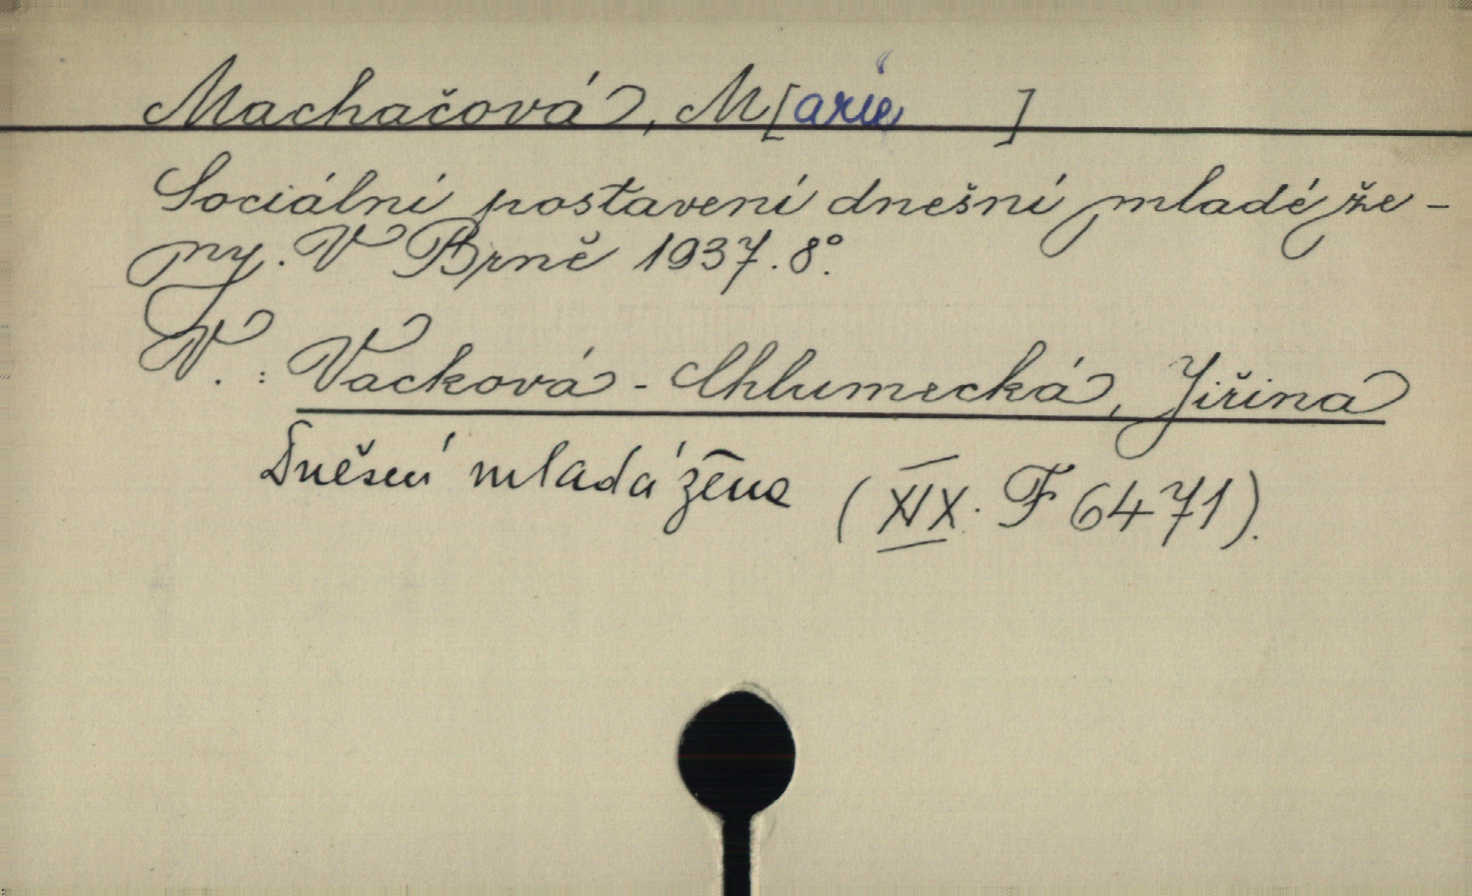 Machačová, M[arie ]
Sociální postavení dnešní mladé že-
ny. V Brně 1937. 8°.
V. : Vacková - Chlumecká, Jiřina
Dnešní mladá žena (XIX. F 6471).